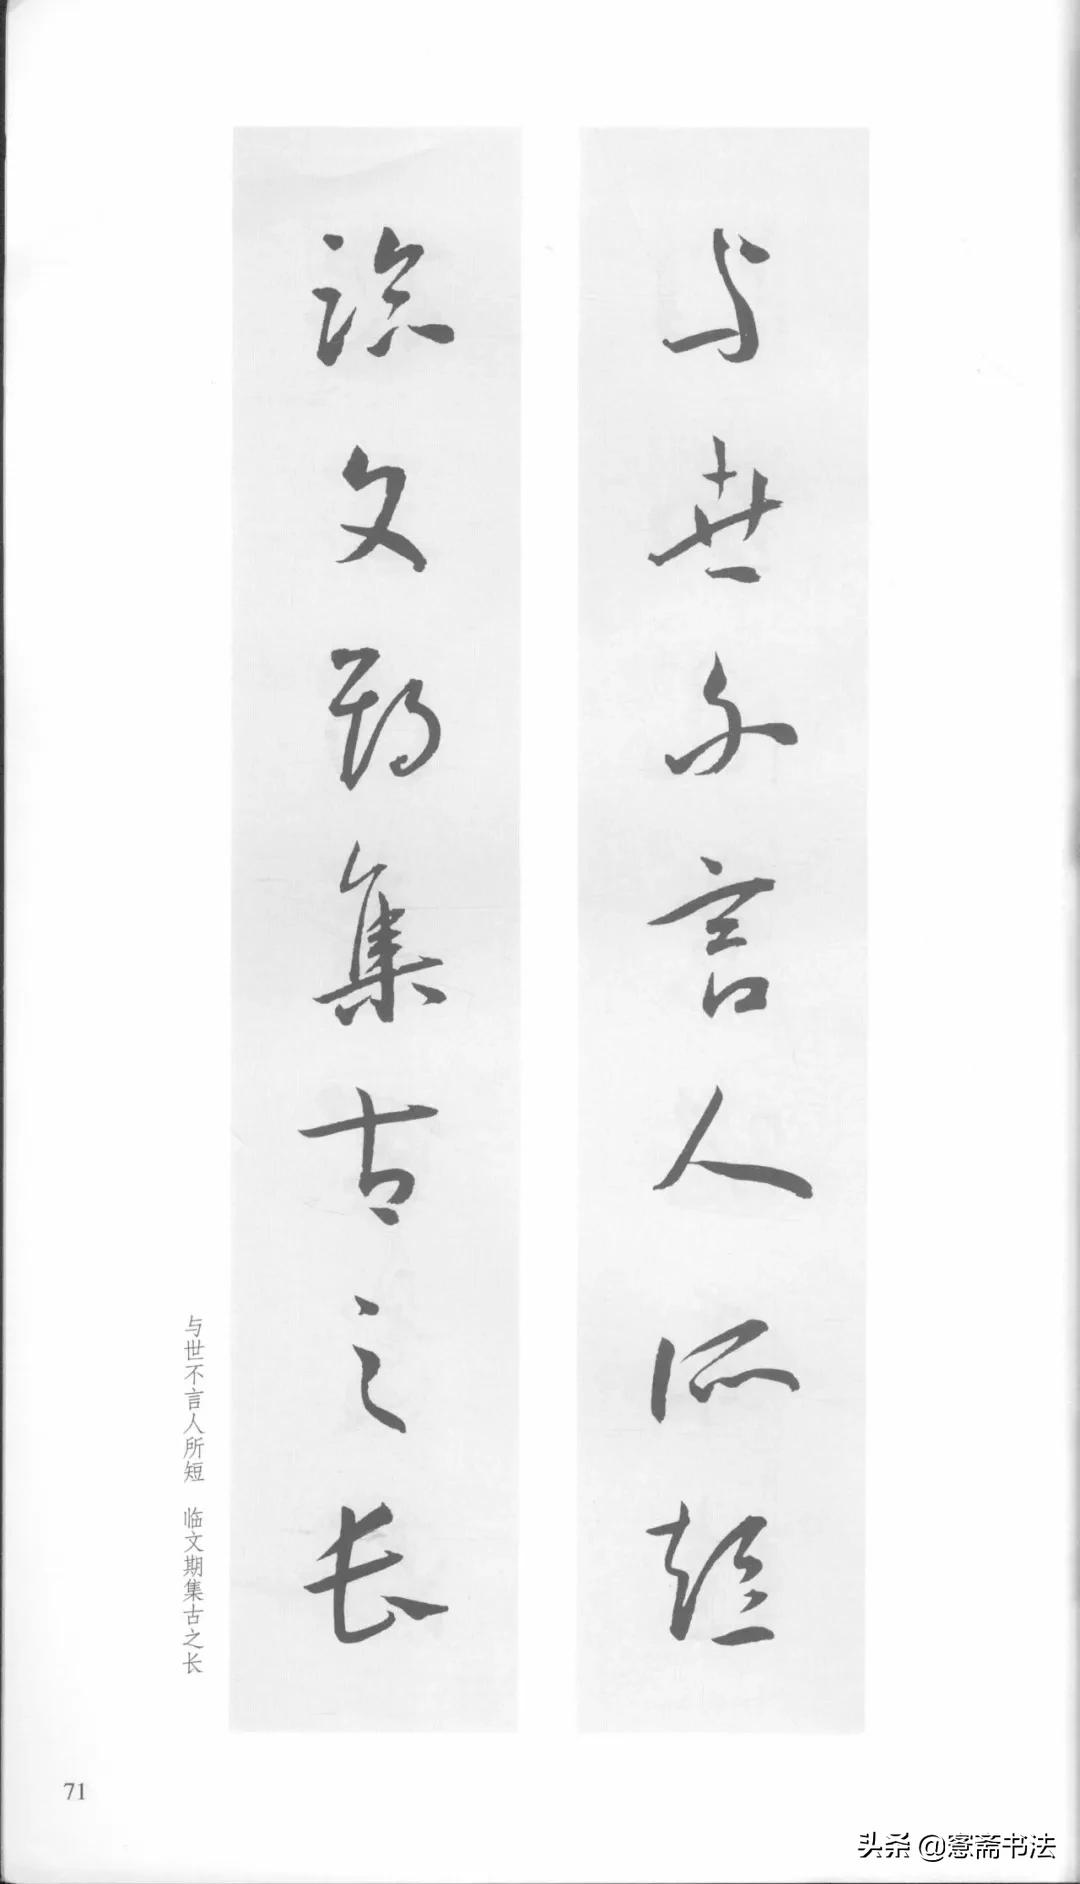 与世不言人所短
临文期集古之长
与世不言人所短 临文期集古之长
71
头条 @窓斋书法